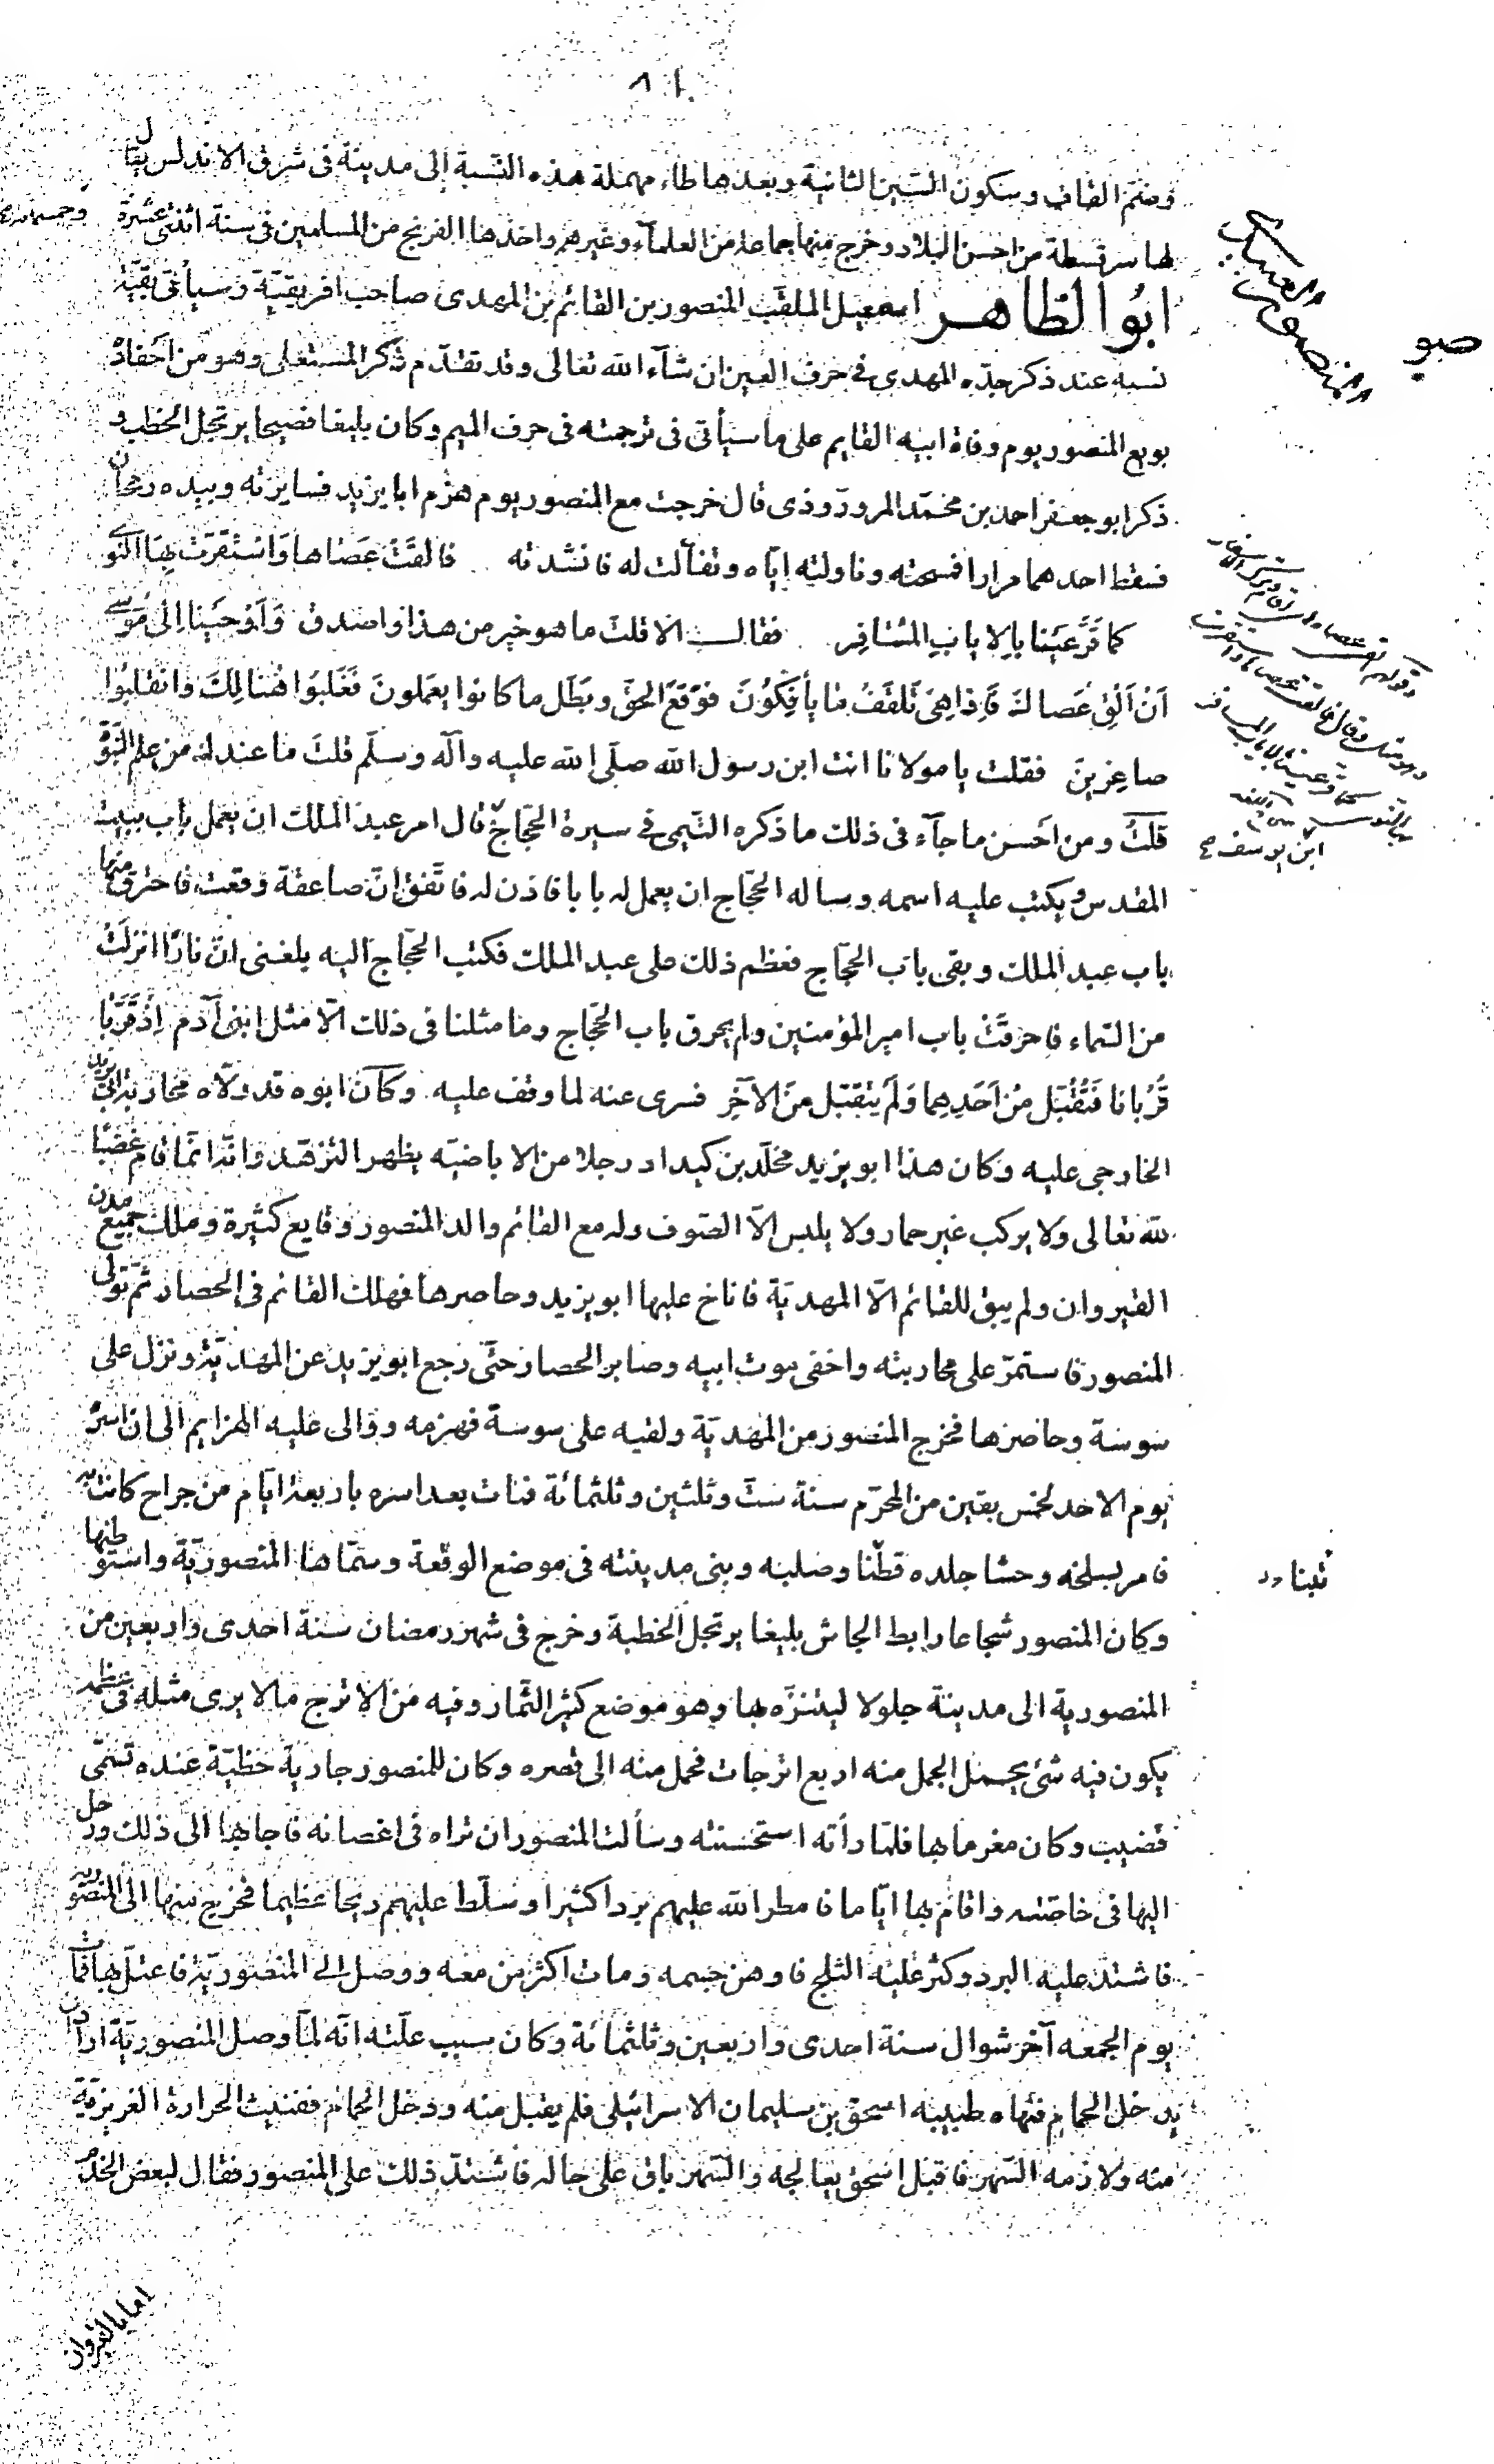 ٨١
وضم القاف وسكون السين الثانية وبعدها طاء مهملة هذه النسبة إلى مدينة فى شرق الاندلس يقال
لها سرقسطة من احسن البلاد وخرج منها جماعة من العلماء وغيرهم واخذها الفرنج من المسلمين فى سنة اثنتى عشرة وخمسمائة
ابُو الظاهـر اسمعيل الملقب المنصور بن القائم بن المهدى صاحب افريقيّة وسيأتى بقيّة
نسبه عند ذكر جدّه المهدى فى حرف العين ان شآء الله تعالى وقد تقدّم ذكر المستعلى وهو من احفاده
بويع المنصور يوم وفاة ابيه القايم على ما سيأتى فى ترجمته فى حرف الميم وكان بليغا فصيحا يرتجل الخطب و
ذكر ابو جعفر احمد بن محمّد المرورّوذى قال خرجت مع المنصور يوم هزم ابا يزيد فسايرته وبيده رمحان
فسقط احدهما مرارا فمسحته وناولته إيّاه وتفآلت له فانشدته فالقَتْ عَصَاها وَاسْتَقَرَّتْ بِهَا النوى
كما قَرَّ عَيْنا بِالإيابِ المُسَافِرِ فقالــ الا قلت ما هو خير من هذا واصدق وَاَوْحَيْنا اِلى مُوسى
اَنْ اَلْقِ عَصَاكَ فَاِذا هِىَ تَلْقَفُ مَا يأفِكُونَ فَوَقَعَ الحَقُّ وبَطَلَ ما كانوا يَعمَلونَ فَغُلِبُوا هُنالِكَ وانقلَبُوا
صاغِرينَ فقلت يا مولانا انت ابن رسول الله صلّى الله عليه وآله وسلّم قلتَ ما عندك من علم النبوّة
قلتُ ومن اَحسن ما جآء فى ذلك ما ذكره التيمى فى سيرة الحجّاج قال امر عبد الملك ان يعمل باب ببيت
المقدس ويكتب عليه اسمه وساله الحجّاج ان يعمل له بابا فاذن له فاتّفق انّ صاعقة وقعت فاحترق منها
باب عبد الملك وبقى باب الحجّاج فعظم ذلك على عبد الملك فكتب الحجّاج اليه بلغنى انّ نارًا انزلَتْ
من السّماء فاحرقَتْ باب امير المؤمنين ولم يحرق باب الحجّاج وما مثلنا فى ذلك الّا مثل ابنى آدم اِذْ قَرَّبا
قُرْبانا فَتُقُبّل مِنْ اَحَدِهِما وَلَم يُتَقَبَّل مِنَ الآخَرِ فسرى عنه لما وقف عليه وكان ابوه قد ولّاه محاربة ابى يزيد
الخارجى عليه وكان هذا ابو يزيد مخلّد بن كيداد رجلا من الاباضيّه يظهر التزهّد وانّه انّما قام غضبًا
لله تعالى ولا يركب غير حمار ولا يلبس الّا الصّوف وله مع القائم والد المنصور وقايع كثيرة وملك جميع مدن
القيروان ولم يبق للقائم الّا المهديّة فاناخ عليها ابو يزيد وحاصرها فهلك القائم فى الحصار ثمّ تولّى
المنصور فاستمرّ على محاربته واخفى موت ابيه وصابر الحصار حتّى رجع ابو يزيد عن المهديّة ونزل على
سوسة وحاصرها فخرج المنصور من المهديّة ولقيه على سوسة فهزمه ووالى عليه الهزايم الى ان اسرَه
يوم الاحد لخمس بقين من المحرّم سنة ستّ وثلثين وثلثمائة فمات بعد اسره باربعة ايّام من جراح كانت به
فامر بسلخه وحشا جلده قطنا وصلبه وبنى مدينته فى موضع الوقعة وسمّاها المنصوريّة واستوطنها
وكان المنصور شجاعا رابط الجاش بليغا يرتجل الخطبة وخرج فى شهر رمضان سنة احدى واربعين من
المنصورية الى مدينة جلولا ليتنزّه بها وهو موضع كثير الثّمار وفيه من الاترج ما لا يرى مثله فى عظمه
يكون فيه شئ يحمل الجمل منه اربع اترجات فحمل منه الى قصره وكان للمنصور جارية حظيّة عنده تسمّى
قضيب وكان مغرما بها فلمّا رأته استحسنته وسألت المنصور ان تراه فى اغصانه فاجابها الى ذلك ورحل
اليها فى خاصّته واقام بها ايّاما فامطر الله عليهم بردا كثيرا وسلّط عليهم ريحا عظيما فخرج منها الى المنصورية
فاشتد عليه البرد وكثر عليه الثلج فاوهن جسمه ومات اكثر من معه ووصل الى المنصوريّة فاعتلّ بها فمات
يوم الجمعه آخر شوال سنة احدى واربعين وثلثمائة وكان سبب علّته انّه لمّا وصل المنصوريّة اراد ان
يدخل الحمام فنهاه طبيبه اسحق بن سليمان الاسرائيلى فلم يقبل منه ودخل الحمام ففنيت الحرارة الغريزيّة
منه ولازمه السّهر فاقبل اسحق يعالجه والسّهر باق على حاله فاشتدّ ذلك على المنصور فقال لبعض الخدم
المنصور
صبو
ابن يوسف
اما بالقيروان